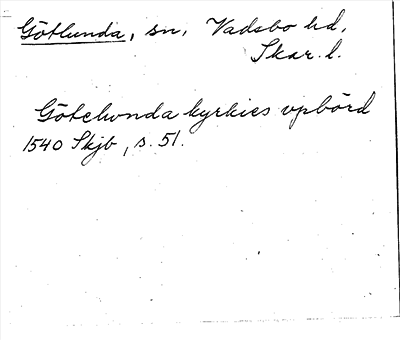 Götlunda, sn, Vadsbo hd,
Skar. l.
Götelwnda kyrkies vpbörd
1540 Skjb, s. 51.